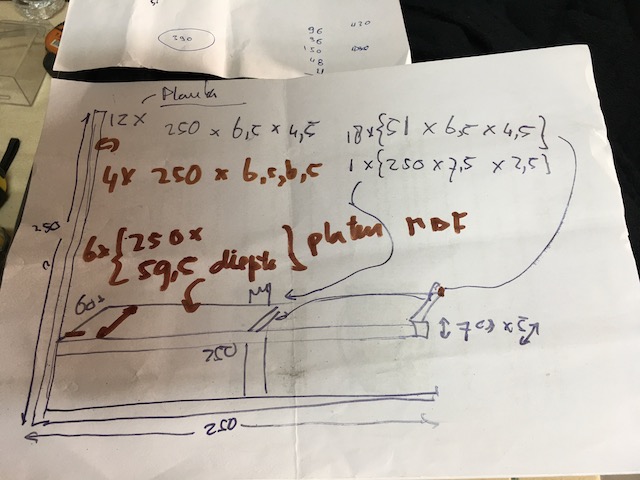 290
96
36
150
48
420
Planken
12x 250 x 6,5 x 4,5
4x 250 x 6,5, 6,5
18x {51 x 6,5 x 4,5}
1x {250 x 7,5 x 2,5}
6x {250 x
59,5 diepte} platen MDF
250
60x
250
250